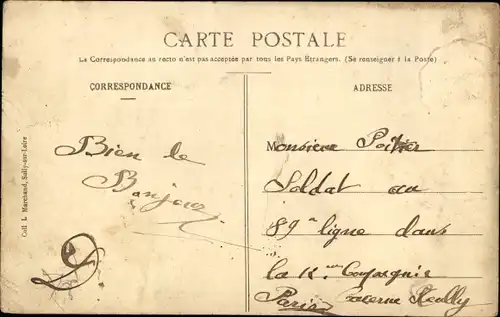 CARTE POSTALE
La Correspondance au recto n'est pas acceptée par tous les Pays Étrangers. (Se renseigner à la Poste)
CORRESPONDANCE
ADRESSE
Bien le
Bonjour
Monsieur
Soldat au
89e ligne dans
la Compagnie
Paris Caserne Reuilly
Coll. L. Marchand, Sully-sur-Loire